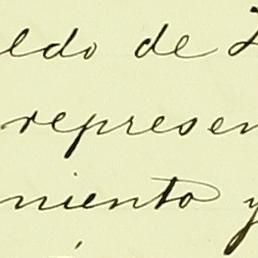 eldo de
represen
niento y